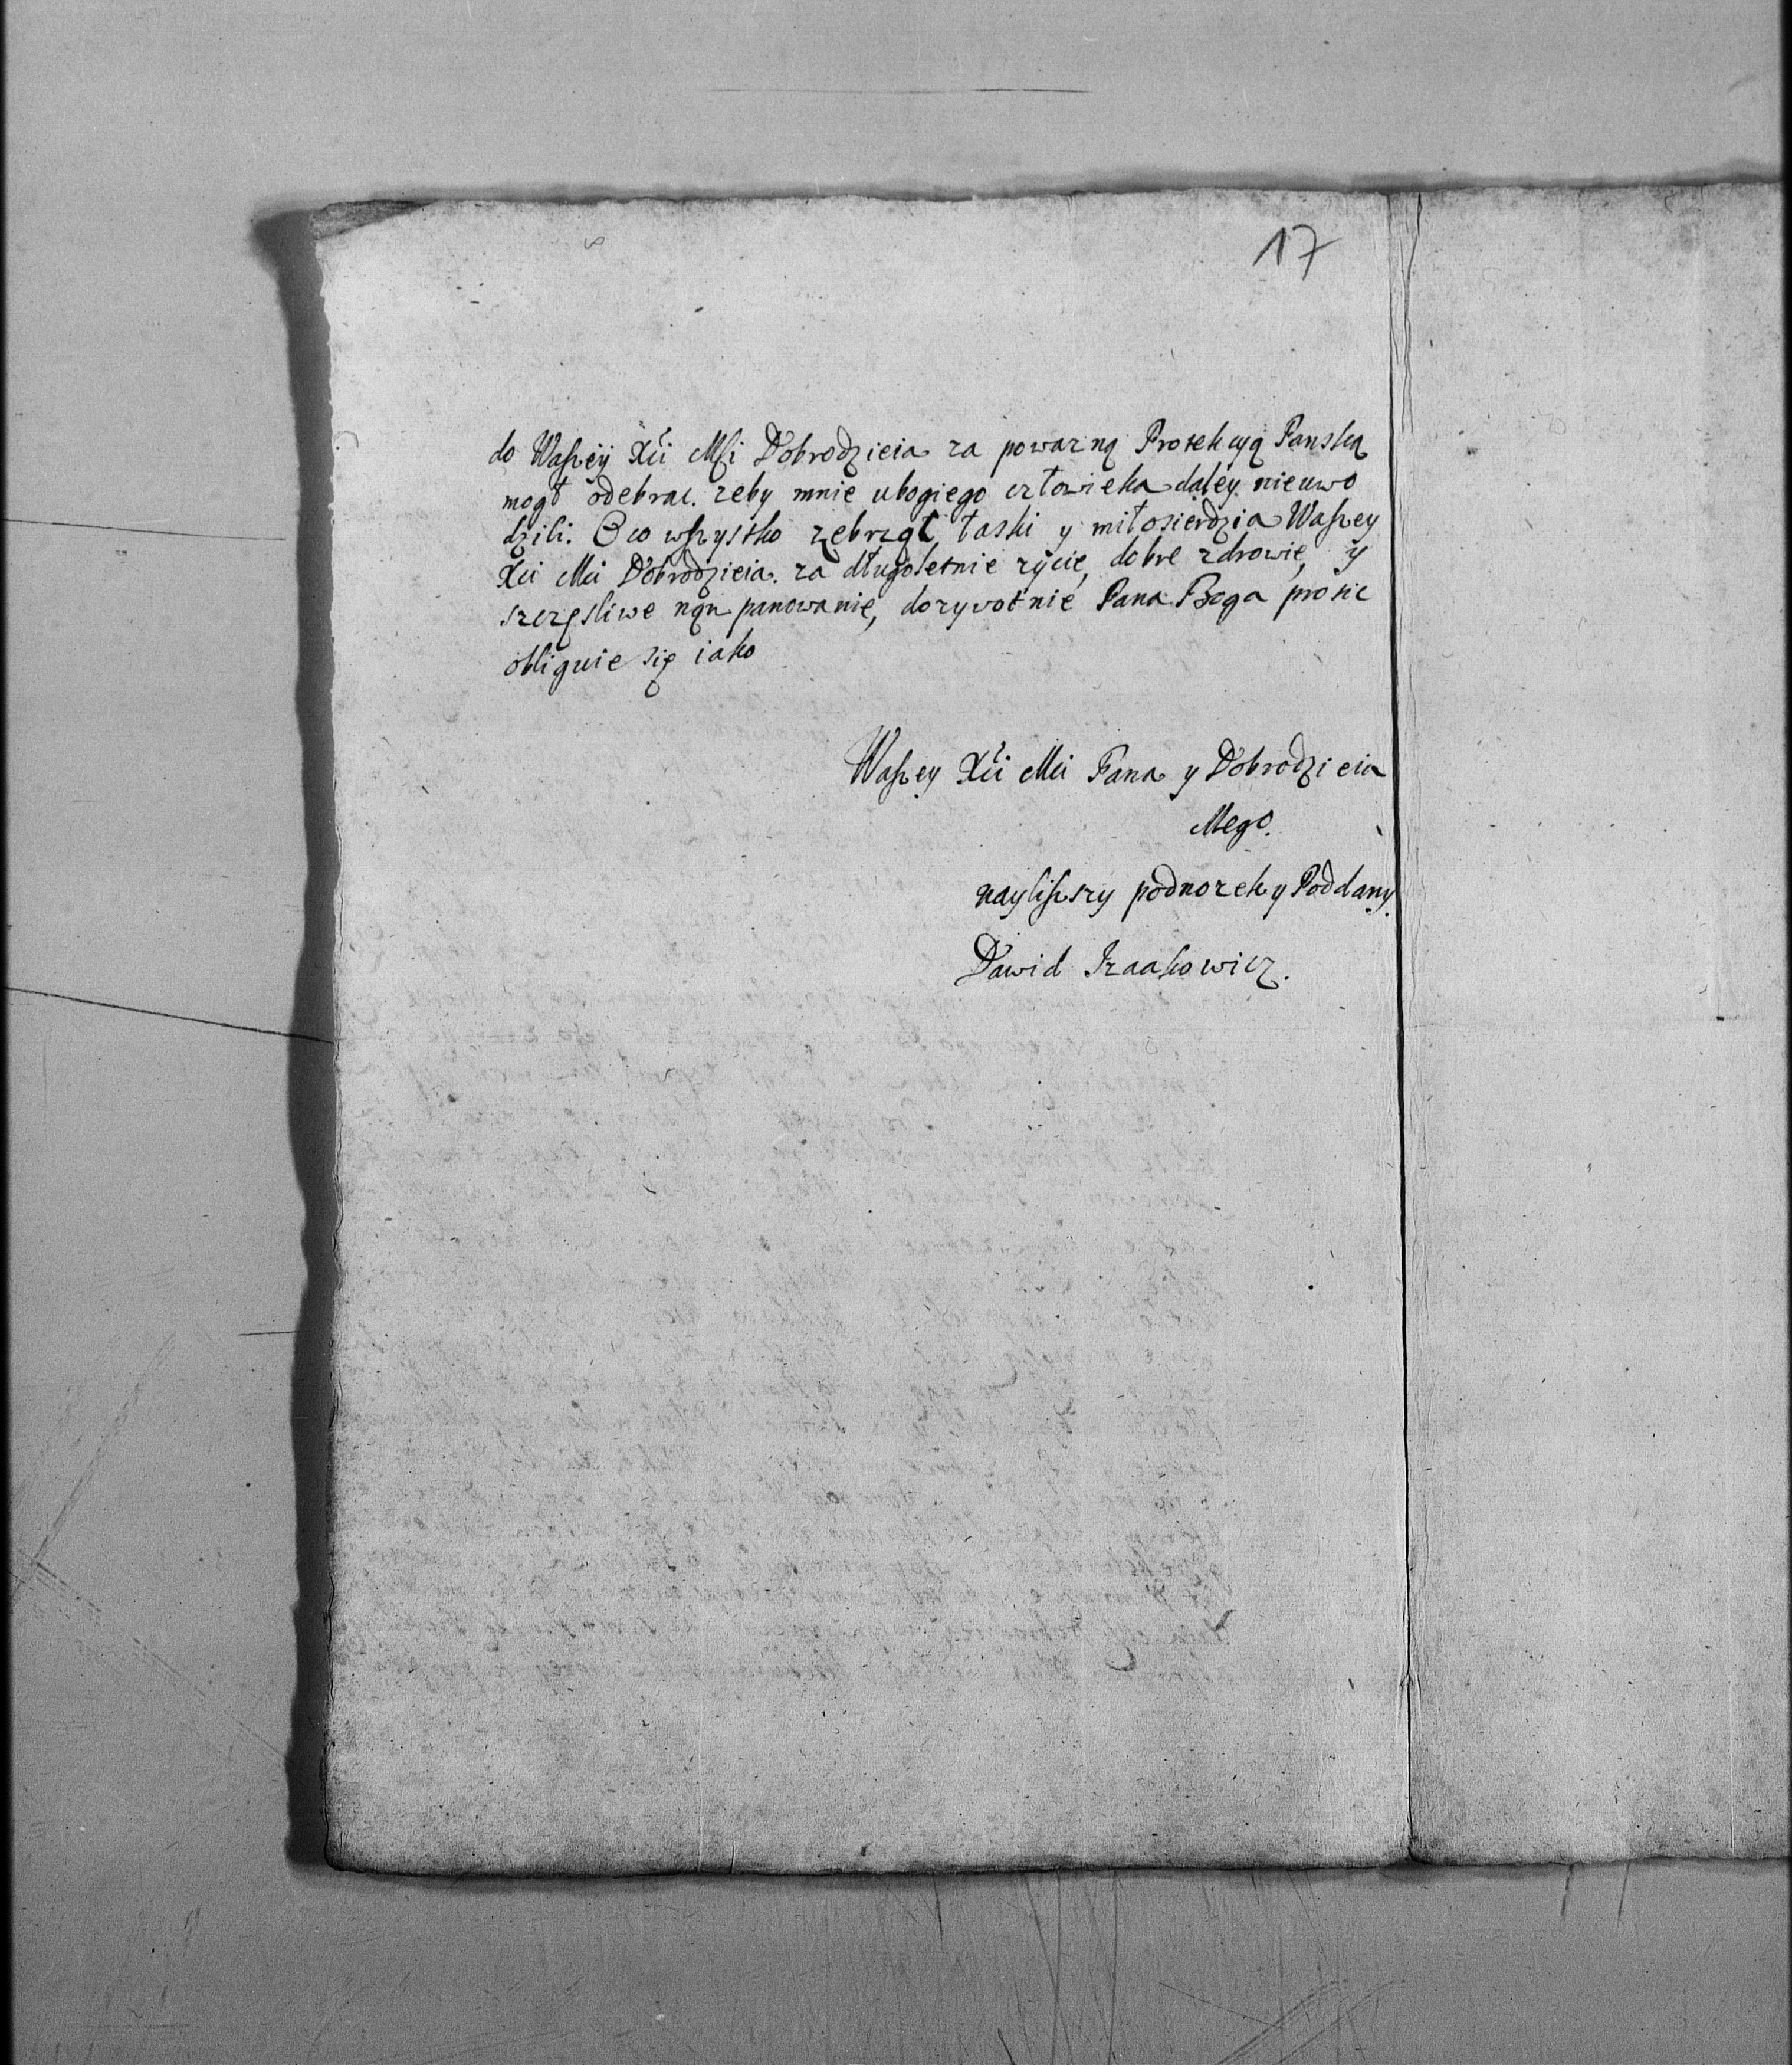 17
do Waszey Xci Mści Dobrodzieia za powazną Protekcyą Panską
mogł odebrac. zeby mnie ubogiego człowieka daley nieuwo
dzili. O co wszystko zebrząc łaski y miłosierdzia Waszey
Xci Mci Dobrodzieia. za długoletnie zycie, dobre zdrowie, y
szczęsliwe panowanie, dozywotnie Pana Boga prosic
obliguie się iako
Waszey Xci Mci Pana y Dobrodzieia
Mego.
naylichszy podnozek y Poddany.
Dawid Izaakowicz.